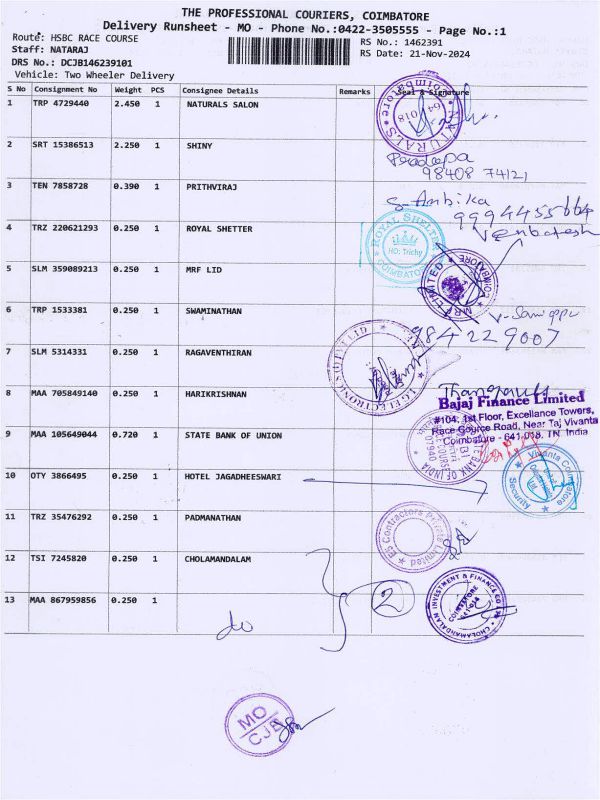 THE PROFESSIONAL COURIERS, COIMBATORE
Delivery Runsheet - MO - Phone No.:0422-3505555 - Page No.:1
Route: HSBC RACE COURSE
RS No.: 1462391
Staff: NATARAJ
RS Date: 21-Nov-2024
DRS No.: DCJB146239101
Vehicle: Two Wheeler Delivery
S No Consignment No Weight PCS Consignee Details Remarks Seal & Signature
1 TRP 4729440 2.450 1 NATURALS SALON
NATURALS Coimbatore 641 018
2 SRT 15386513 2.250 1 SHINY
Pradeepa
98408 74121
3 TEN 7858728 0.390 1 PRITHVIRAJ
S. Ambika
9994455664
4 TRZ 220621293 0.250 1 ROYAL SHETTER
Venkatesh
ROYAL SHELTER HO: Trichy COIMBATORE
5 SLM 359089213 0.250 1 MRF LID
MRF LIMITED COIMBATORE
6 TRP 1533381 0.250 1 SWAMINATHAN
984229007
7 SLM 5314331 0.250 1 RAGAVENTHIRAN
LG ELECTRONICS
8 MAA 705849140 0.250 1 HARIKRISHNAN
Bajaj Finance Limited
#104, 1st Floor, Excellance Towers,
Race Cource Road, Near Taj Vivanta
Coimbatore - 641-018, TN, India
9 MAA 105649044 0.720 1 STATE BANK OF UNION
BANK OF INDIA
10 OTY 3866495 0.250 1 HOTEL JAGADHEESWARI
Vivanta Coimbatore Security
11 TRZ 35476292 0.250 1 PADMANATHAN
E5 Contractors Private Limited
12 TSI 7245820 0.250 1 CHOLAMANDALAM
13 MAA 867959856 0.250 1
do
2
CHOLAMANDALAM INVESTMENT & FINANCE CO LTD COIMBATORE
MO
CJB